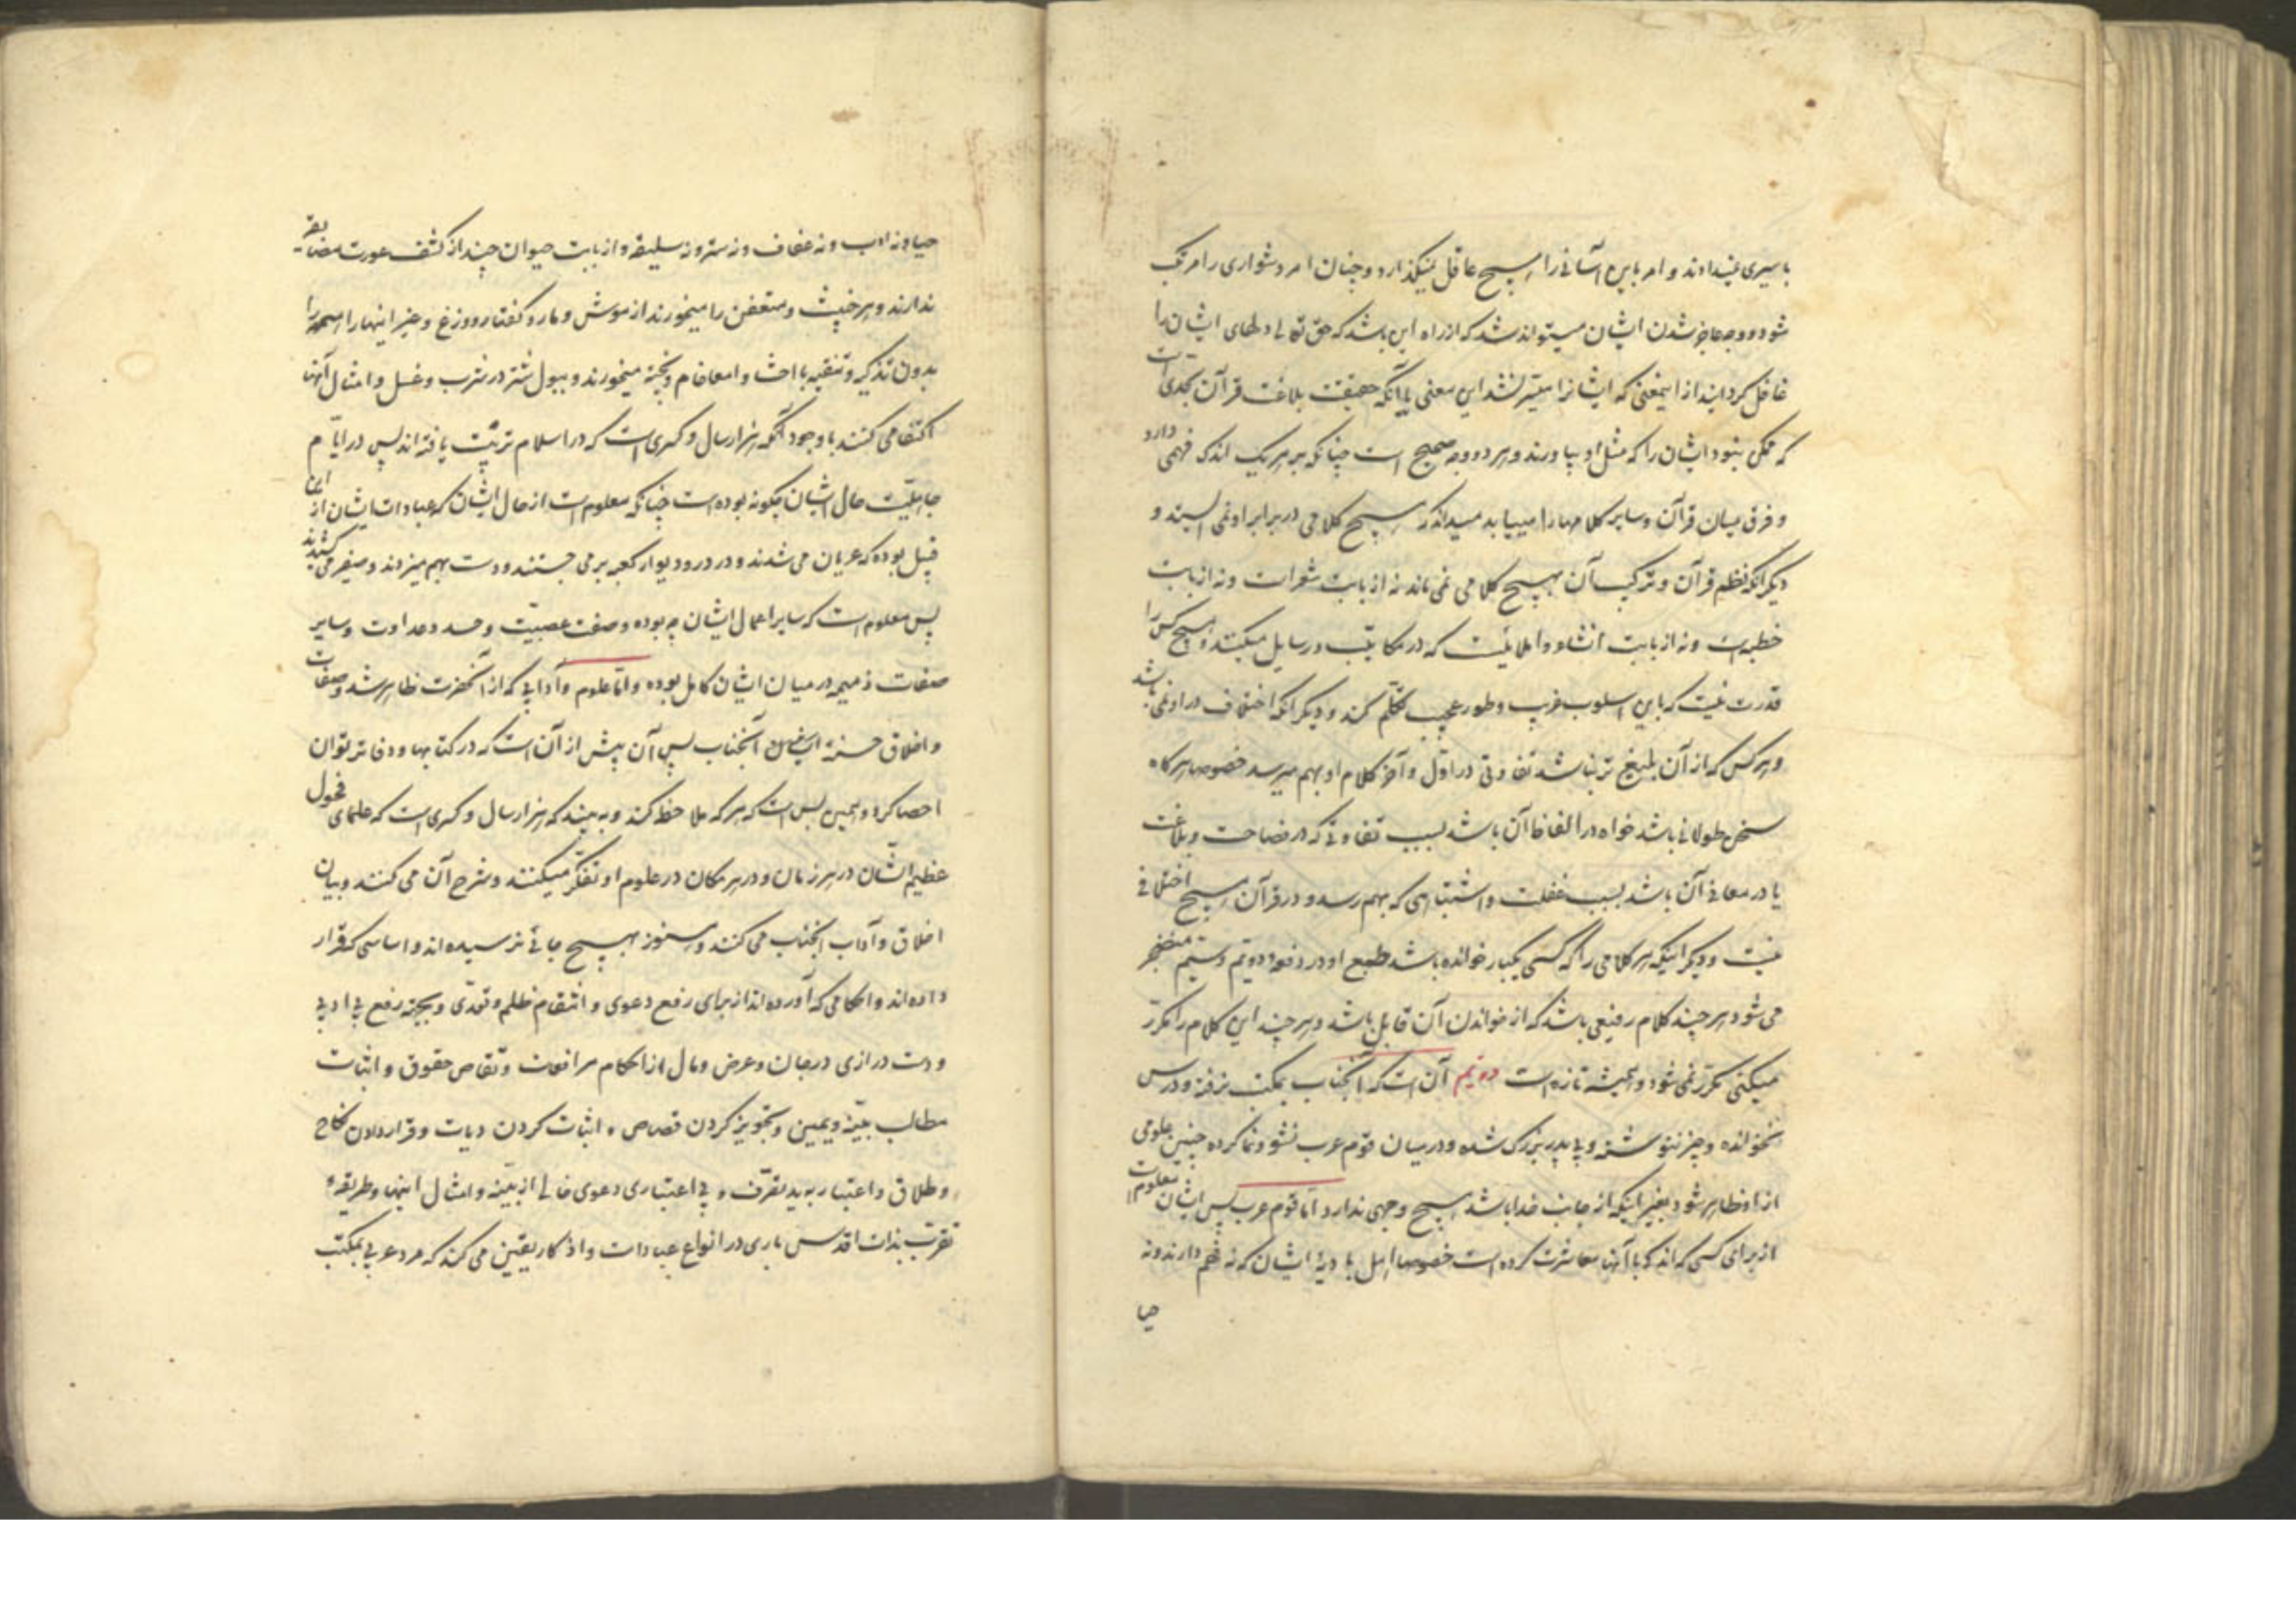 باسیری نمیدادند و امر باین آسانی را هیچ عاقل نمیگذارد و چنان امر دشواری را مرتکب
شود و وجه عاجز شدن ایشان میتواند شد که از راه این باشد که حق تعالی دلهای ایشان را
غافل گردانید از اینمعنی که ایشانرا میسر نشد این معنی یا آنکه حقیقت بلاغت قرآن بحدی است
که ممکن نبود ایشان را که مثل او بیاورند و هر دو وجه صحیح است چنانکه بر هر یک اندک فهمی دارد
و فرق میان قرآن و سایر کلامها را مییابد میداند که هیچ کلامی در برابر او نمی ایستد و
دیگر آنکه نظم قرآن و ترکیب آن بهیچ کلامی نمی ماند نه از بابت شعر است و نه از بابت
خطبه است و نه از بابت انشاء و املائیست که در مکاتیب و رسایل میکنند و هیچ کس را
قدرت نیست که باین اسلوب غریب و طور عجیب تکلم کند و دیگر آنکه اختلاف در او نمی باشد
و هر کس که از آن بلیغ تر نباشد تفاوتی در اول و آخر کلام او بهم میرسد خصوصا هرگاه
سخن طولانی باشد خواه در الفاظ آن باشد بسبب تفاوتی که در فصاحت و بلاغت
یا در معانی آن باشد بسبب غفلت و اشتباهی که بهم رسد و در قرآن هیچ اختلافی
نیست و دیگر اینکه هر کلامی را که کسی یکبار خوانده باشد طبع او در دفعه دویم و سیم منضجر
می شود هر چند کلام رفیعی باشد که از خواندن آن قابل باشد و هر چند این کلام را مکرر
میکنی مکرر نمی شود و همیشه تازه است دویم آن است که آنجناب بمکتب نرفته و درس
نخوانده و چیز ننوشته و بی پدر بزرگ شده و در میان قوم عرب نشو و نما کرده چنین علومی
از او ظاهر شود بغیر اینکه از جانب خدا باشد هیچ وجهی ندارد اما قوم عرب پس ایشان معلوم است
از برای کسی که اندک با آنها معاشرت کرده است خصوصا اهل بادیهٔ ایشان که نه فهم دارند و نه
حیا
حیا و نه ادب و نه عفاف و نه ستر و نه سلیقه و از بابت حیوان چند از کشف عورت مضایقه
ندارند و هر خبیث و متعفن را میخورند از موش و مار و کفتار و وزغ و غیر اینها را همه را
بدون تذکیه و تنقیه با احشا و امعا خام و پخته میخورند و ببول شتر در شرب و غسل و امثال آنها
اکتفا می کنند با وجود آنکه هزار سال و کسری است که در اسلام تربیت یافته اند پس در ایام
جاهلیت حال ایشان چگونه بوده است چنانکه معلوم است از حال ایشان که عبادات ایشان از این
قبیل بوده که عریان می شدند و در در و دیوار کعبه بر می جستند و دست بهم میزدند و صفیر می کشیدند
پس معلوم است که سایر اعمال ایشان چه بوده و صفت عصبیت و حسد و عداوت و سایر
صفات ذمیمه در میان ایشان کامل بوده و اما علوم و آدابی که از آنحضرت ظاهر شد و صفات
و اخلاق حسنه آنجناب پس آن بیش از آن است که در کتابها و دفاتر توان
احصا کرد و همین بس است که هر که ملاحظه کند و به بیند که هزار سال و کسری است که علمای فحول
عظیم الشان در هر زمان و در هر مکان در علوم او تفکر میکنند و شرح آن می کنند و بیان
اخلاق و آداب آنجناب می کنند و هنوز بهیچ جائی نرسیده اند و اساسی که قرار
داده اند و احکامی که آورده اند از برای رفع دعوی و انتقام ظلم و تعدی و بجهة رفع بی ادبی
و دست درازی در جان و عرض و مال از احکام مرافعات و تقاص حقوق و اثبات
مطالب ببینه و یمین و تجویز کردن قصاص و اثبات کردن دیات و قرار دادن نکاح
و طلاق و اعتبار به ید تصرف و بی اعتباری دعوی خالی از بینه و امثال اینها و طریقهٔ
تقرب بذات اقدس باری در انواع عبادات و اذکار یقین می کند که مرد عربی بمکتب